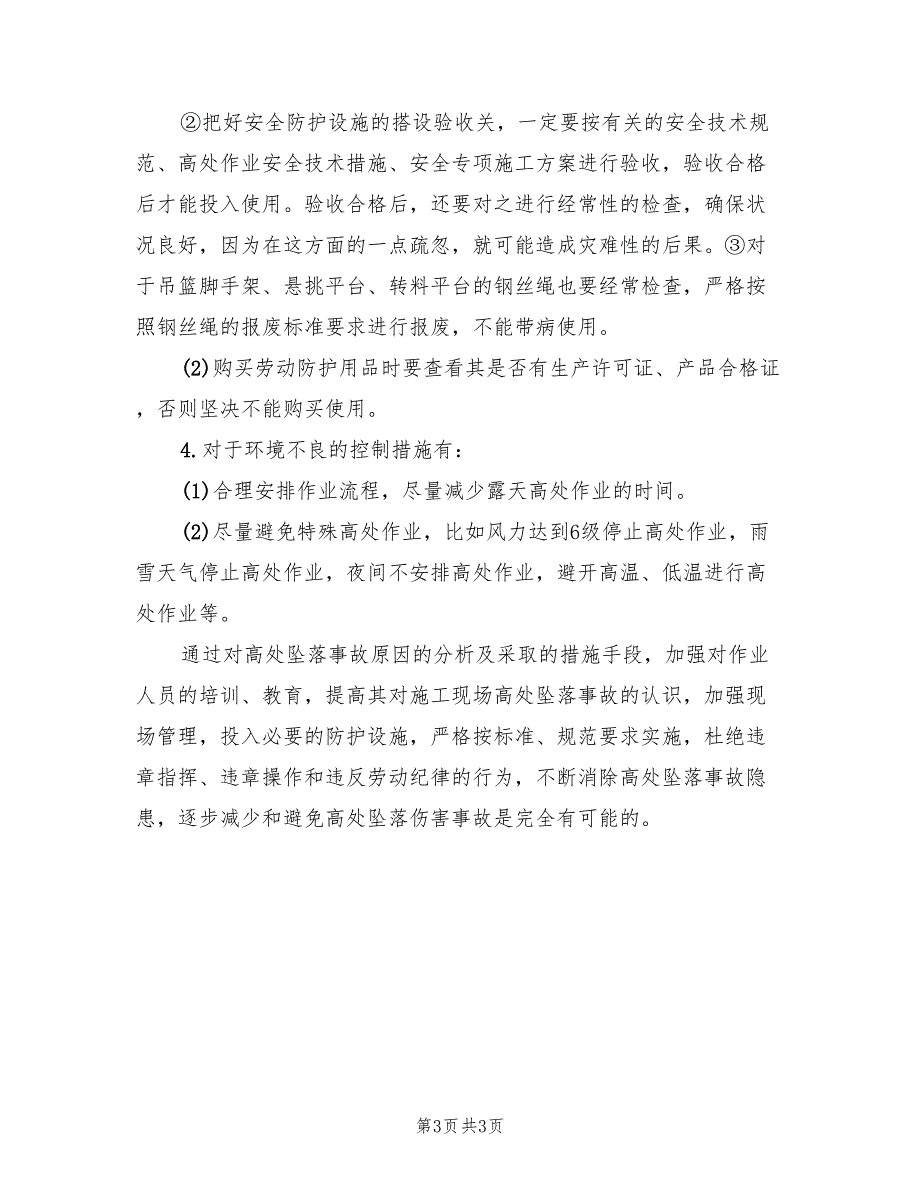 ②把好安全防护设施的搭设验收关，一定要按有关的安全技术规
范、高处作业安全技术措施、安全专项施工方案进行验收，验收合格
后才能投入使用。验收合格后，还要对之进行经常性的检查，确保状
况良好，因为在这方面的一点疏忽，就可能造成灾难性的后果。③对
于吊篮脚手架、悬挑平台、转料平台的钢丝绳也要经常检查，严格按
照钢丝绳的报废标准要求进行报废，不能带病使用。
(2)购买劳动防护用品时要查看其是否有生产许可证、产品合格证
，否则坚决不能购买使用。
4.对于环境不良的控制措施有：
(1)合理安排作业流程，尽量减少露天高处作业的时间。
(2)尽量避免特殊高处作业，比如风力达到6级停止高处作业，雨
雪天气停止高处作业，夜间不安排高处作业，避开高温、低温进行高
处作业等。
通过对高处坠落事故原因的分析及采取的措施手段，加强对作业
人员的培训、教育，提高其对施工现场高处坠落事故的认识，加强现
场管理，投入必要的防护设施，严格按标准、规范要求实施，杜绝违
章指挥、违章操作和违反劳动纪律的行为，不断消除高处坠落事故隐
患，逐步减少和避免高处坠落伤害事故是完全有可能的。
第3页 共3页